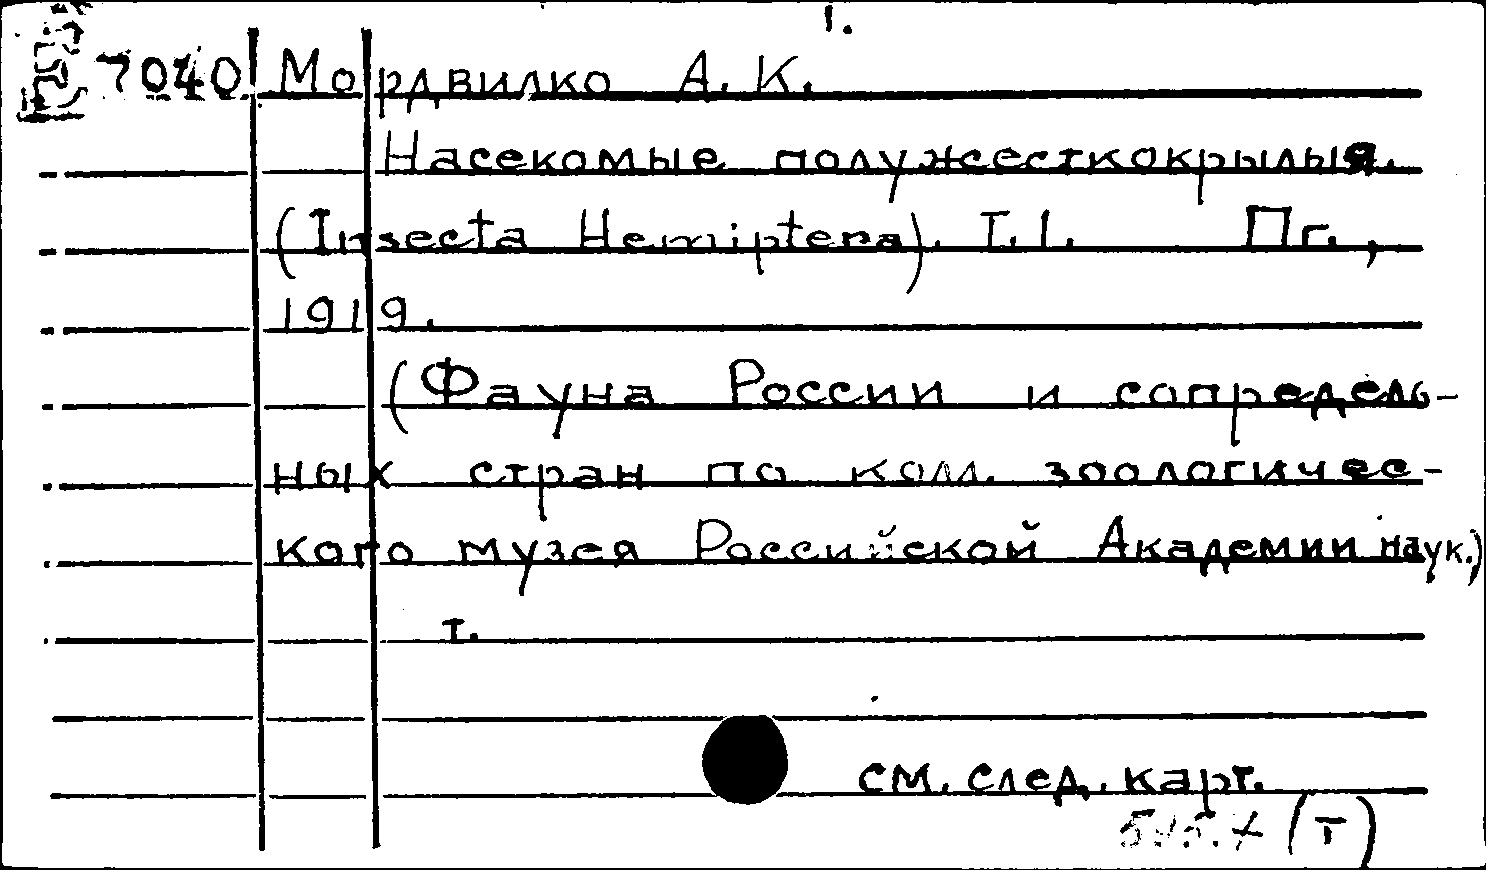 1.
7040 Мордвилко А. К.
Насекомые полужесткокрылыя.
(Insecta Hemiptera). Т.I. Пг.,
1919.
(Фауна России и сопредель-
ных стран по колл. зоологичес-
кого музея Российской Академии наук.)
т.
см. след. карт.
595.7 (т)